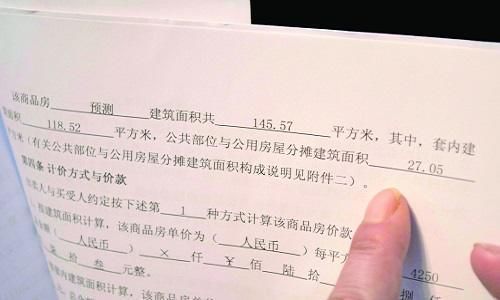 该商品房 预测 建筑面积共 145.57 平方米，其中，套内建
筑面积 118.52 平方米，公共部位与公用房屋分摊建筑面积 27.05
平方米（有关公共部位与公用房屋分摊建筑面积构成说明见附件二）。
第四条 计价方式与价款
出卖人与买受人约定按下述第 1 种方式计算该商品房价款
按建筑面积计算，该商品房单价为（ 人民币 ）每平方 4250
（ 人民币 ） × 仟 ￥ 佰 陆 拾 捌
柒 拾 叁 元整。
内建筑面积计算，该商品房单价为（